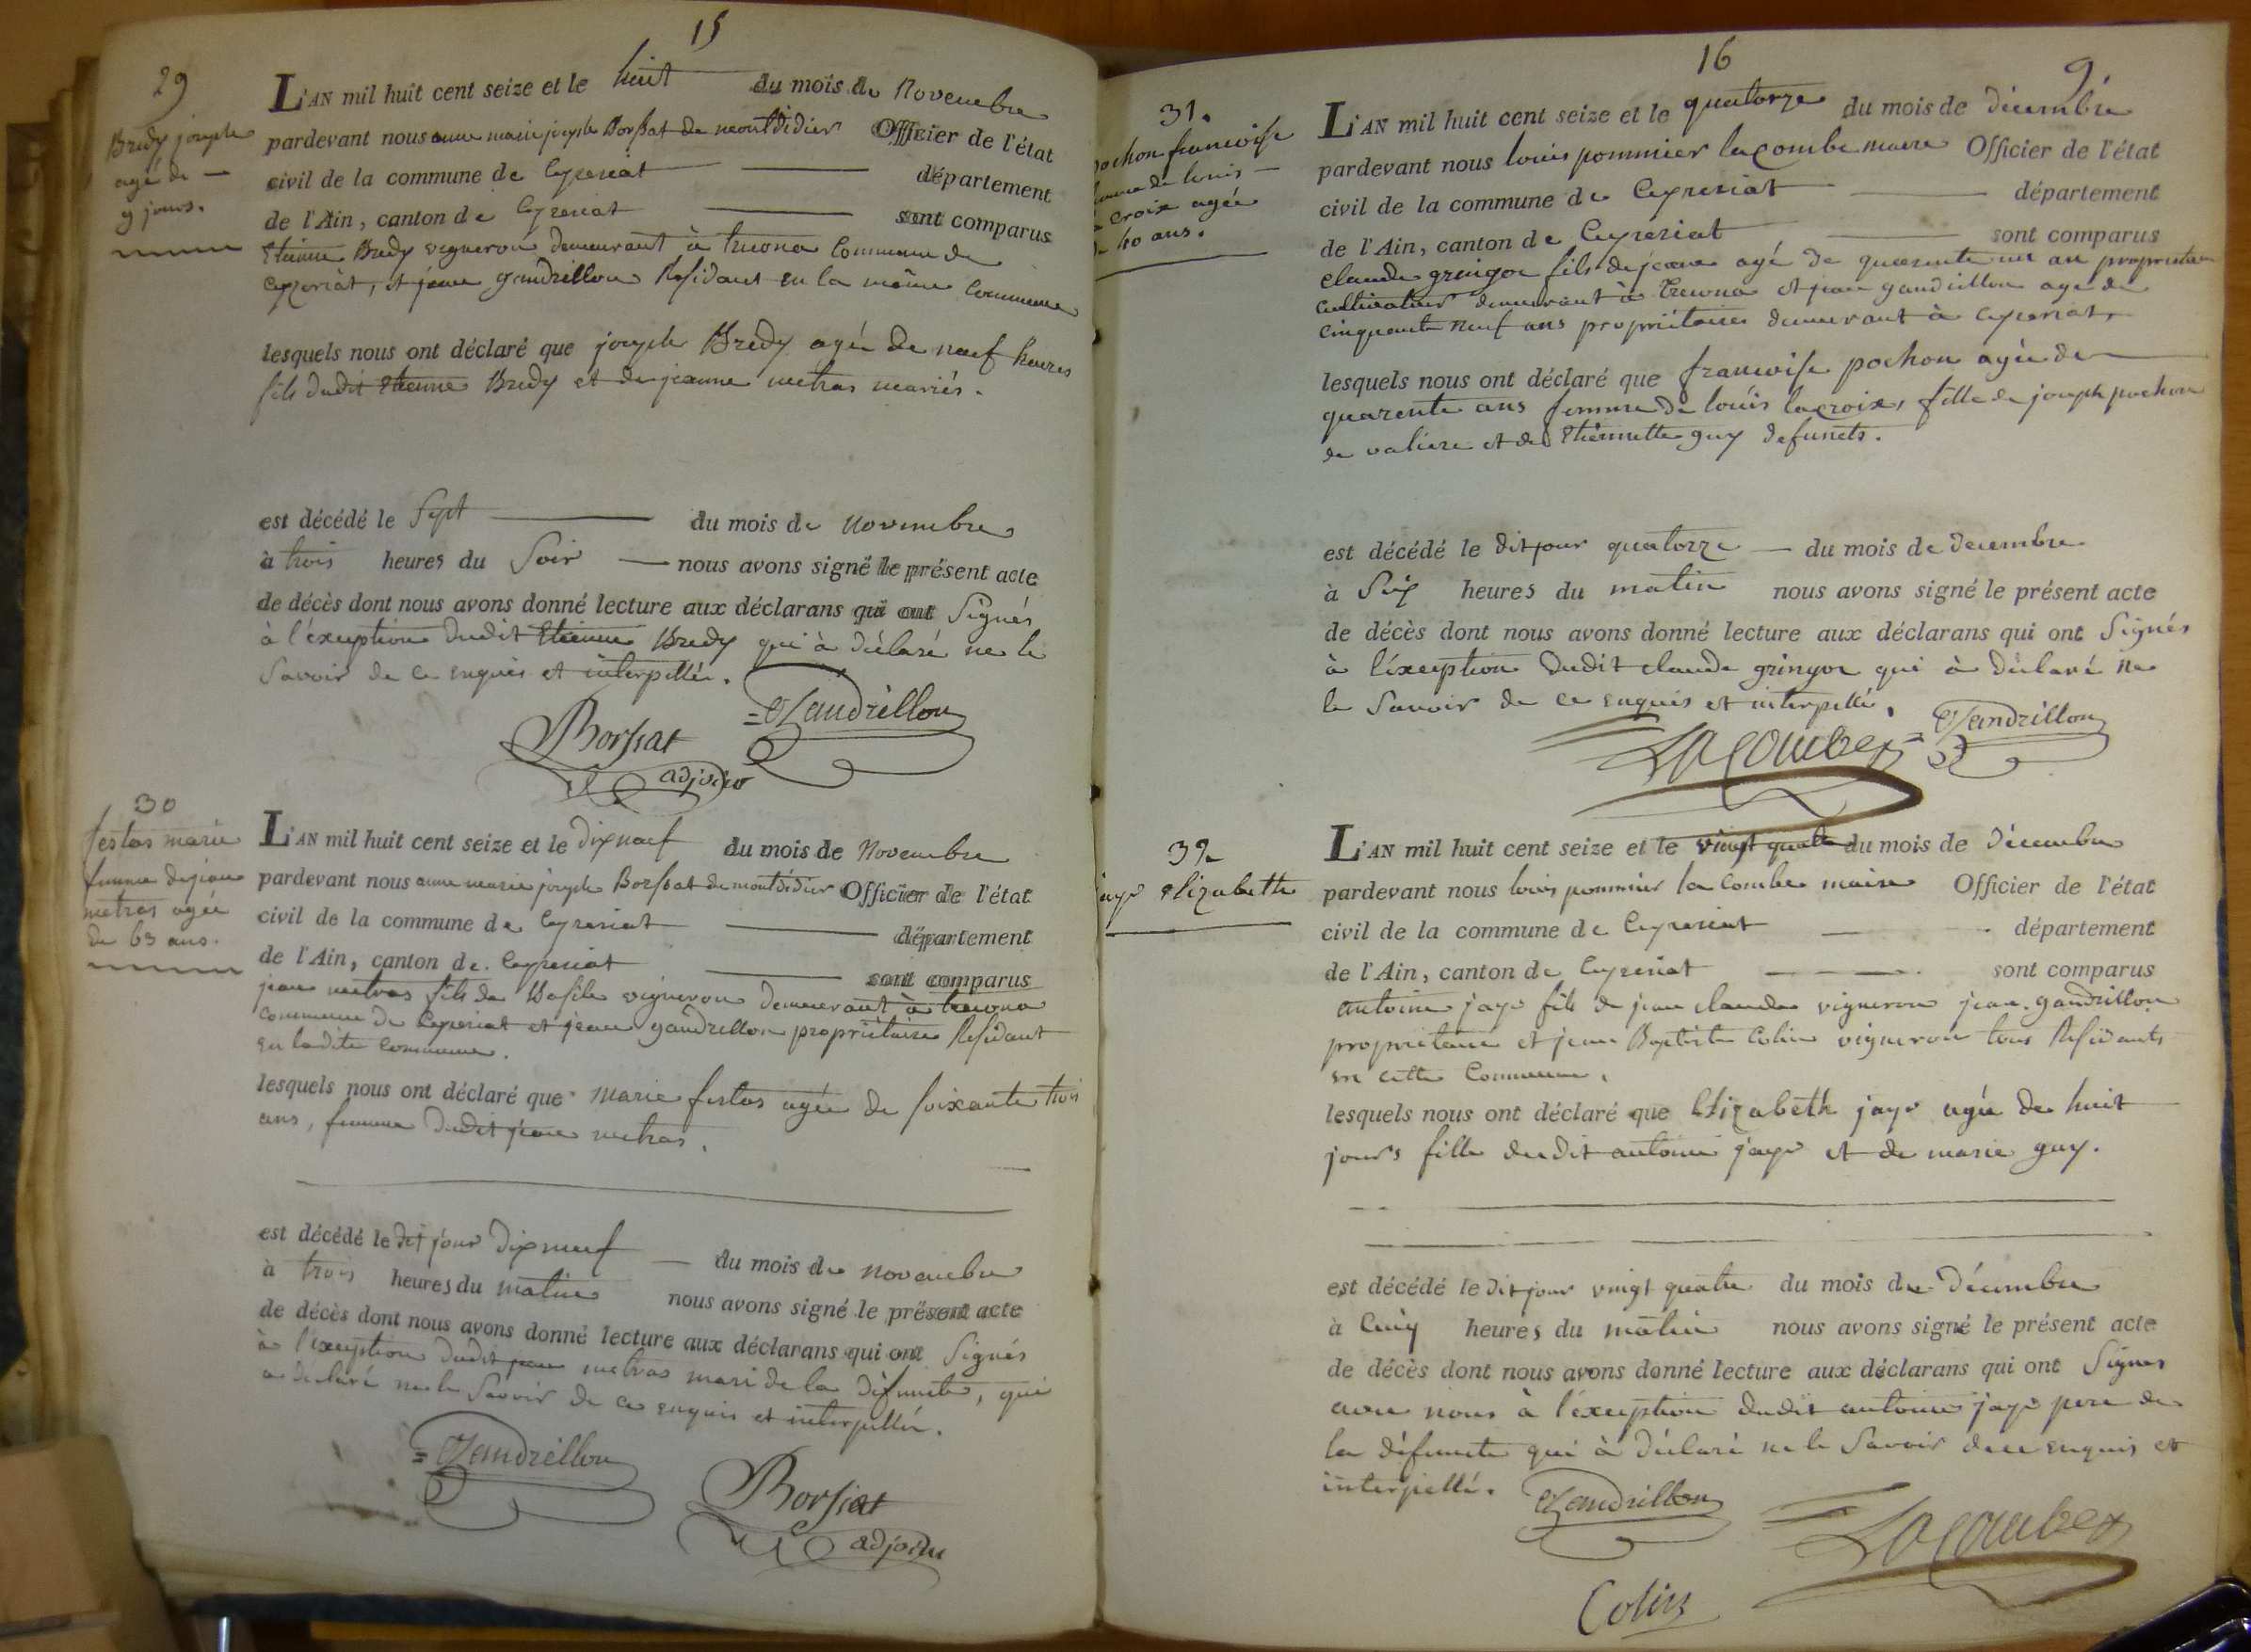 15
29
Bredy joseph
agé de —
9 jours.
L'AN mil huit cent seize et le huit du mois de Novembre
pardevant nous anne marie joseph Borssat de montdidier Officier de l'état
civil de la commune de Ceyzeriat département
de l'Ain, canton de Ceyzeriat sont comparus
Etienne Bredy vigneron demeurant à treona Commune de
Ceyzeriat, et jean gandrillon Residant en la même Commune
lesquels nous ont déclaré que joseph Bredy agée de neuf heures
fils dudit Etienne Bredy et de jeanne metras mariés.
est décédé le Sept du mois de Novembre
à trois heures du Soir — nous avons signé le présent acte
de décès dont nous avons donné lecture aux déclarans qui ont Signés
à l'exception dudit Etienne Bredy qui à déclaré ne le
Savoir de ce enquis et interpellé.
Borssat
adjoint
Gandrillon
30
festas marie
femme de jean
metras agée
de 63 ans.
L'AN mil huit cent seize et le dix neuf du mois de Novembre
pardevant nous anne marie joseph Borssat de montdidier Officier de l'état
civil de la commune de Ceyzeriat département
de l'Ain, canton de Ceyzeriat sont comparus
jean metras fils de Basile vigneron demeurant à treona
commune de Ceyzeriat et jean gandrillon propriétaire Residant
en ladite Commune.
lesquels nous ont déclaré que Marie festas agée de soixante trois
ans, femme dudit jean metras.
est décédé le dit jour dix neuf — du mois de Novembre
à trois heures du matin nous avons signé le présent acte
de décès dont nous avons donné lecture aux déclarans qui ont Signés
à l'exception dudit jean metras mari de la défunte, qui
a déclaré ne le Savoir de ce enquis et interpellé.
Gandrillon
Borssat
adjoint
16
9.
31.
pochon francoise
femme de louis —
la croix agée
de 40 ans.
L'AN mil huit cent seize et le quatorze du mois de décembre
pardevant nous louis pommier lacombe maire Officier de l'état
civil de la commune de Ceyzeriat département
de l'Ain, canton de Ceyzeriat sont comparus
claude gringoz fils de jeane agé de quarente un an propriétaire
cultivateur demeurant à treona et jean gandrillon age de
cinquante neuf ans propriétaire demeurant à ceyzeriat,
lesquels nous ont déclaré que francoise pochon agée de
quarente ans femme de louis lacroix, fille de joseph pochon
de valiere et de Etiennette guy defunets.
est décédé le dit jour quatorze — du mois de decembre
à Six heures du matin nous avons signé le présent acte
de décès dont nous avons donné lecture aux déclarans qui ont Signés
à l'éxception dudit claude gringoz qui à déclaré ne
le Savoir de ce enquis et interpellé.
Lacombe
Gandrillon
32
jayr Elizabeth
L'AN mil huit cent seize et le vingt quatre du mois de décembre
pardevant nous louis pommier la combe maire Officier de l'état
civil de la commune de Ceyzeriat département
de l'Ain, canton de Ceyzeriat sont comparus
antoine jayr fils de jean claude vigneron jean gandrillon
propriétaire et jean Baptiste Colin vigneron tous Residants
en cette Commune.
lesquels nous ont déclaré que Elizabeth jayr agée de huit
jours fille dudit antoine jayr et de marie guy.
est décédé le dit jour vingt quatre du mois de décembre
à Cinq heures du matin nous avons signé le présent acte
de décès dont nous avons donné lecture aux déclarans qui ont Signés
avec nous à l'éxception dudit antoine jayr pere de
la défunte qui à déclaré ne le Savoir de ce enquis et
interpellé.
Gandrillon
Lacombe
Colin